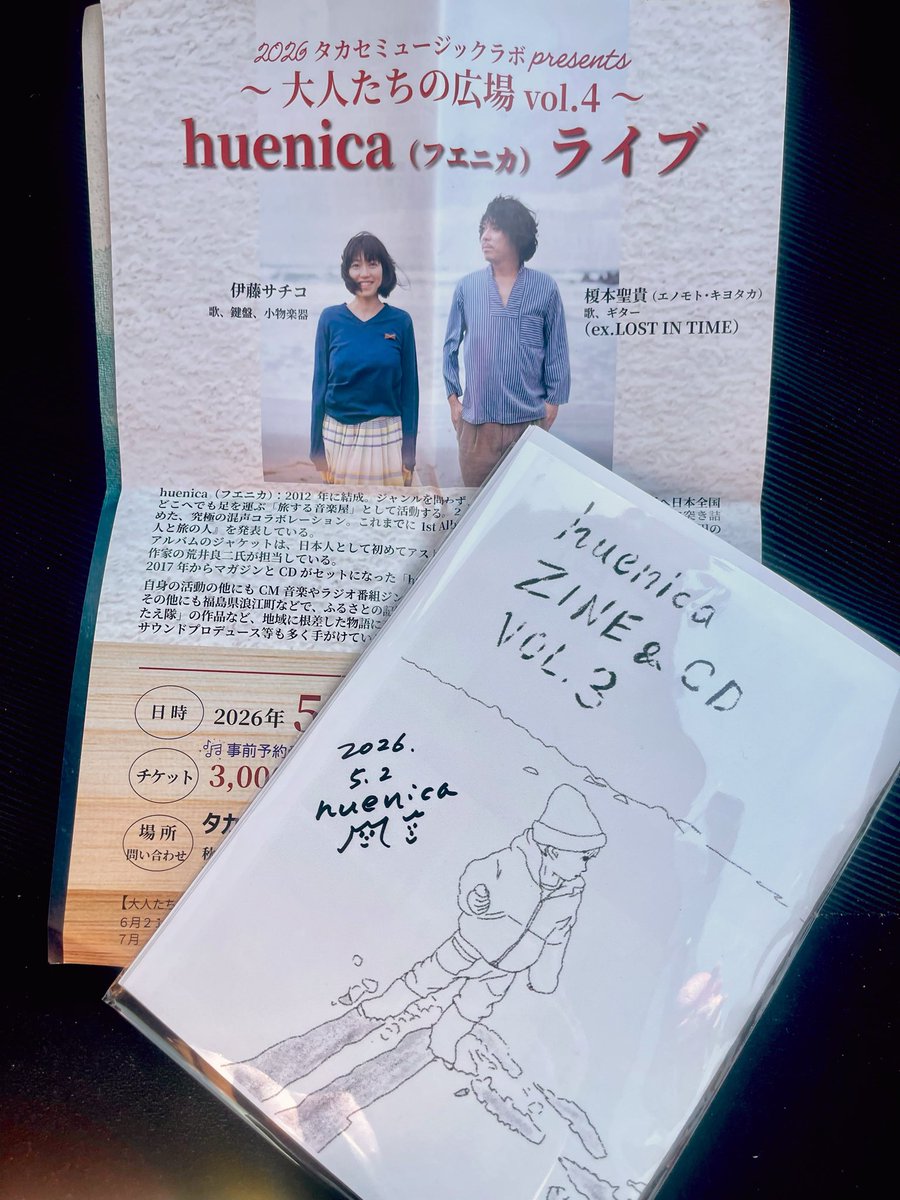 2026 タカセミュージックラボ presents
～ 大人たちの広場 vol.4 ～
huenica（フエニカ）ライブ
伊藤サチコ
歌、鍵盤、小物楽器
榎本聖貴（エノモト・キヨタカ）
歌、ギター
（ex.LOST IN TIME）
huenica（フエニカ）：2012 年に結成。ジャンルを問わず
へ日本全国
どこへでも足を運ぶ『旅する音楽屋』として活動する。2
突き詰
めた、究極の混声コラボレーション。これまでに 1st Alb
人と旅の人』を発表している。
アルバムのジャケットは、日本人として初めてアス
作家の荒井良二氏が担当している。
2017 年からマガジンと CD がセットになった「h
自身の活動の他にも CM 音楽やラジオ番組ジン
その他にも福島県浪江町などで、ふるさとの記
たえ隊」の作品など、地域に根差した物語に
サウンドプロデュース等も多く手がけてい
日時 2026年 5
事前予約
チケット 3,00
場所
問い合わせ
タカ
秋
【大人たち
6月2
7月
huenica
ZINE & CD
VOL.3
2026.
5.2
huenica